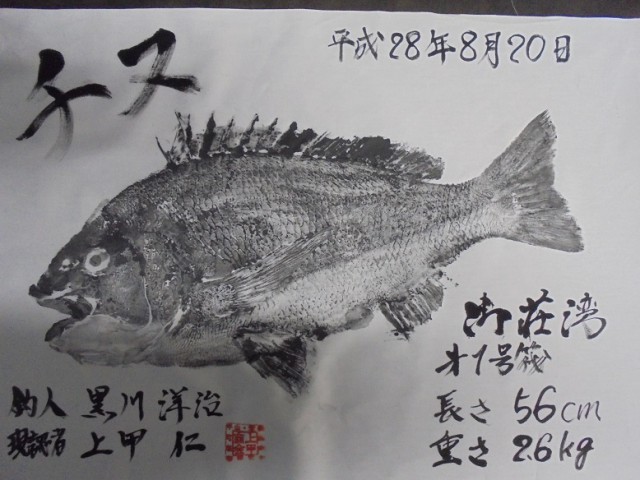 チヌ
平成28年8月20日
御荘湾
才1号筏
長さ 56cm
重さ 2.6kg
釣人 黒川 洋治
現認者 上甲 仁